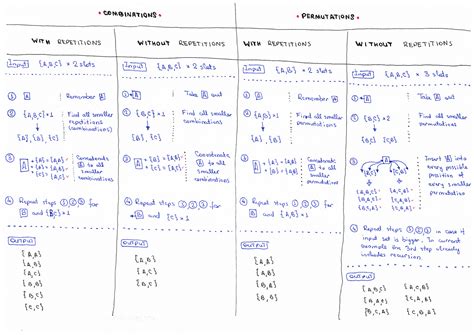 • COMBINATIONS •
• PERMUTATIONS •
WITH REPETITIONS
Input {A,B,C} × 2 slots
① A Remember A
② {A,B,C} × 1 Find all smaller
repetitions
combinations
{A}, {B}, {C}
③ A + {A} = {A,A}
Concatenate
to all
smaller
combinations
④ Repeat steps ① ② ③ for
B and {B,C} × 1
Output
{A,A}
{A,B}
{A,C}
{B,B}
{B,C}
{C,C}
WITHOUT REPETITIONS
Input {A,B,C} × 2 slots
① A Take A out
② {B,C} × 1 Find all smaller
combinations
{B}, {C}
③ A to all
smaller
combinations
④ Repeat steps ① ② ③ for
B and {C} × 1
Output
{A,B}
{A,C}
{B,C}
WITH REPETITIONS
Input {A,B} × 2 slots
① A Remember A
② {A,B} × 1 Find all
smaller
permutations
{A}, {B}
③ A Concatenate
to all
smaller
permutations
④ Repeat steps ① ② ③
for B
Output
{A,A}
{A,B}
{B,A}
{B,B}
WITHOUT REPETITIONS
Input {A,B,C} × 3 slots
① A Take A out
② {B,C} Find all
smaller
permutations
{B,C} {C,B}
③ A Insert A into
every possible
position of
every smaller
permutation
④ Repeat steps ① ② ③ in case if
input set is bigger. In current
example the 3rd step already
includes recursion.
Output
{A,B,C}
{B,A,C}
{B,C,A}
{A,C,B}
{C,A,B}
{C,B,A}